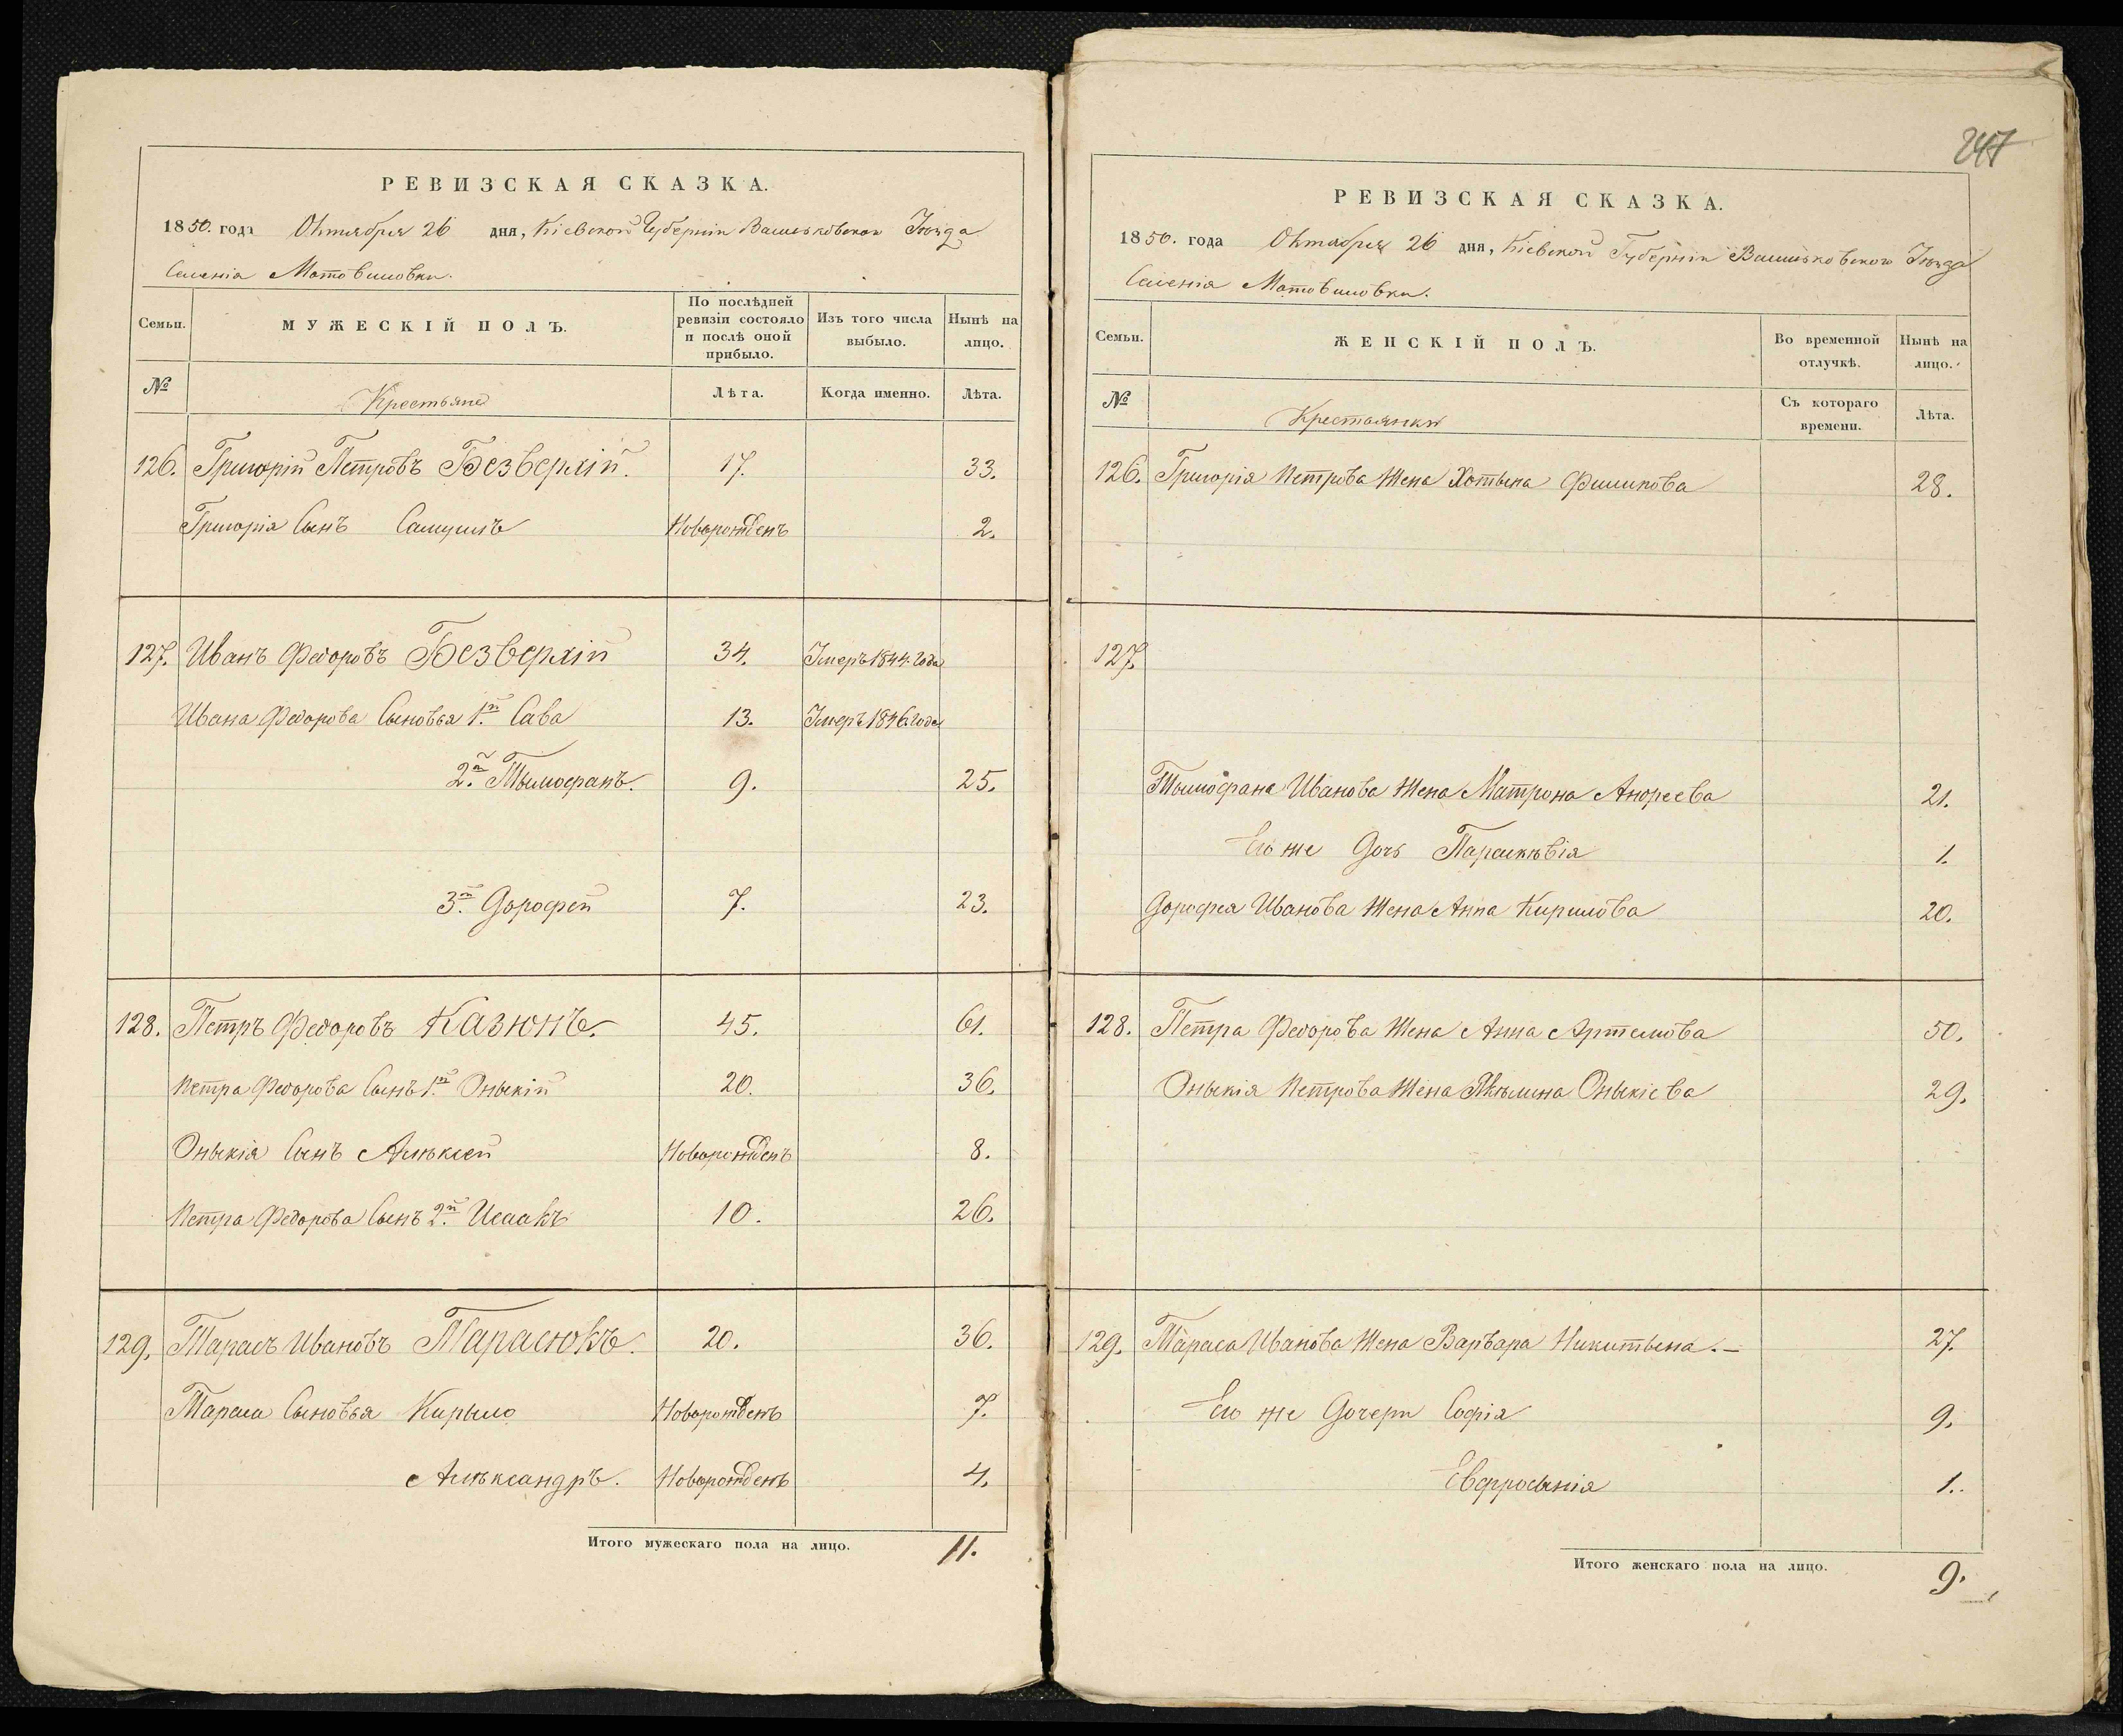 РЕВИЗСКАЯ СКАЗКА.
1850. года Октября 26 дня, Кіевской Губерніи Васильковского Уѣзда
Селенія Мотовиловки.
Семьи.
МУЖЕСКІЙ ПОЛЪ.
По послѣдней ревизіи состояло и послѣ оной прибыло.
Изъ того числа выбыло.
Нынѣ на лицо.
№
Крестьяне
Лѣта.
Когда именно.
Лѣта.
126. Григорій Петровъ Безверхій. 17. 33.
Григорія Сынъ Самуилъ Новорожденъ 2.
127. Иванъ Федоровъ Безверхій 34. Умеръ 1844. года
Ивана Федорова Сыновья 1й. Сава 13. Умеръ 1836 года
2й. Тымофанъ. 9. 25.
3й. Дорофей 7. 23.
128. Петръ Федоровъ Казюнъ. 45. 61.
Петра Федорова Сынъ 1й. Оныкій 20. 36.
Оныкія Сынъ Алѣксей Новорожденъ 8.
Петра Федорова Сынъ 2й. Исаакъ 10. 26.
129. Тарасъ Ивановъ Тарасюкъ. 20. 36.
Тараса Сыновья Кирыло Новорожденъ 7.
Алѣксандръ. Новорожденъ 4.
Итого мужескаго пола на лицо. 11.
247
РЕВИЗСКАЯ СКАЗКА.
1850. года Октября 26 дня, Кіевской Губерніи Васильковского Уѣзда
Селенія Мотовиловки.
Семьи.
ЖЕНСКІЙ ПОЛЪ.
Во временной отлучкѣ.
Нынѣ на лицо.
№
Крестьянки
Съ котораго времени.
Лѣта.
126. Григорія Петрова Жена Хотына Филипова 28.
127.
Тымофана Иванова Жена Матрона Андреева 21.
Его же Дочь Параскѣвія 1.
Дорофея Иванова Жена Анна Кирилова 20.
128. Петра Федорова Жена Анна Артемова 50.
Оныкія Петрова Жена Оныкіева 29.
129. Тараса Иванова Жена Варвара Никитына.- 27.
Его же Дочери Софія 9.
Евфросынія 1.
Итого женскаго пола на лицо. 9.